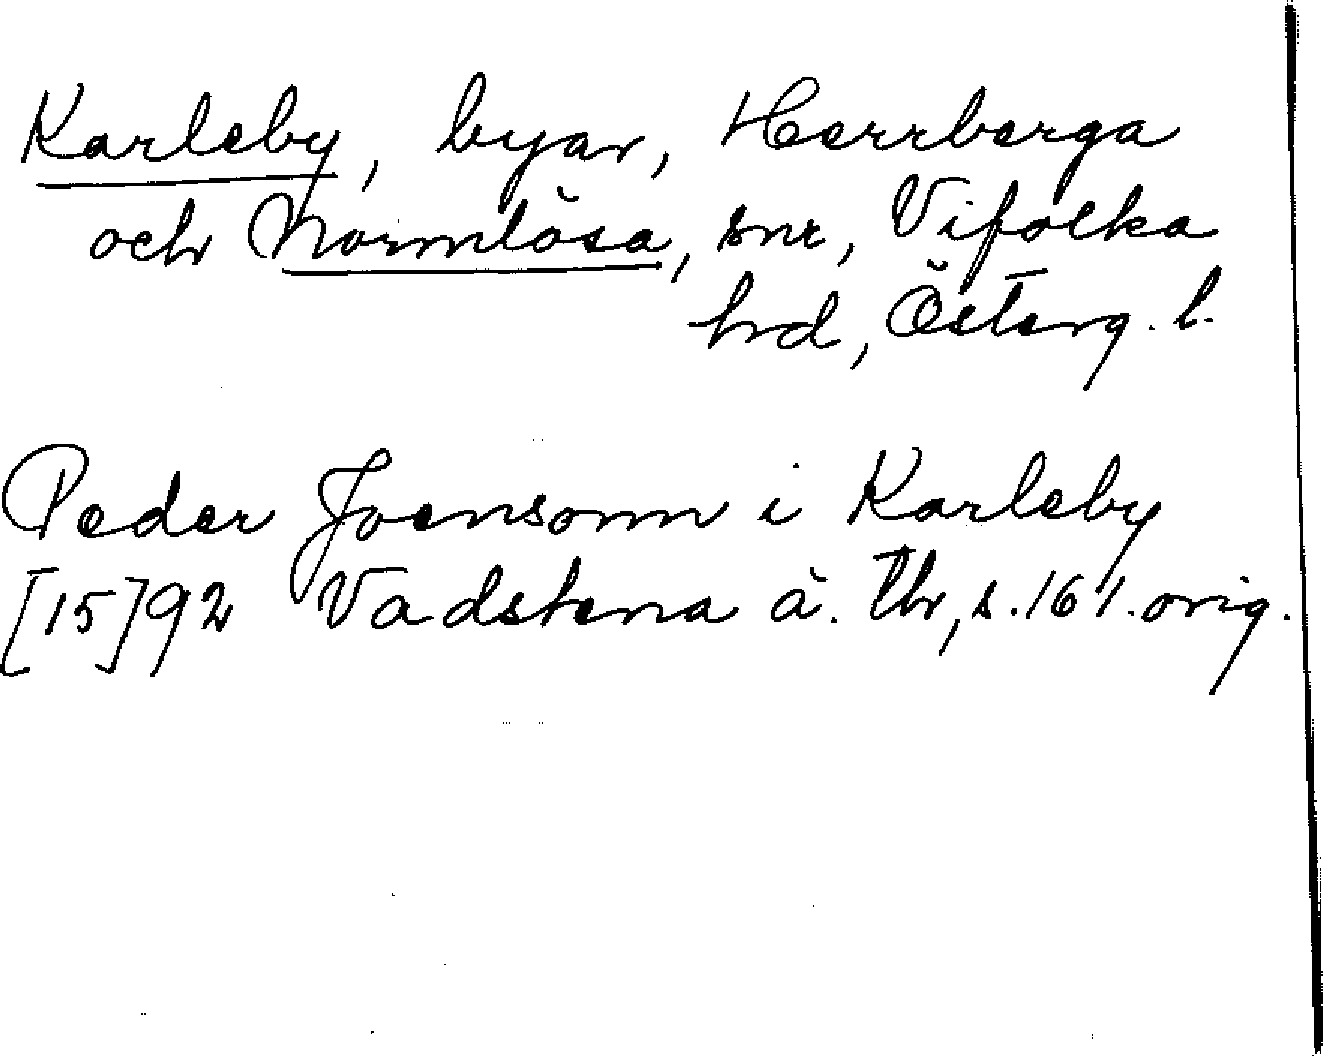 Karleby, byar, Herrberga
och Normlösa, snr, Vifolka
hrd, Österg. l.
Peder Joensonn i Karleby
[15]92 Vadstena ä. Tb, s. 161. orig.